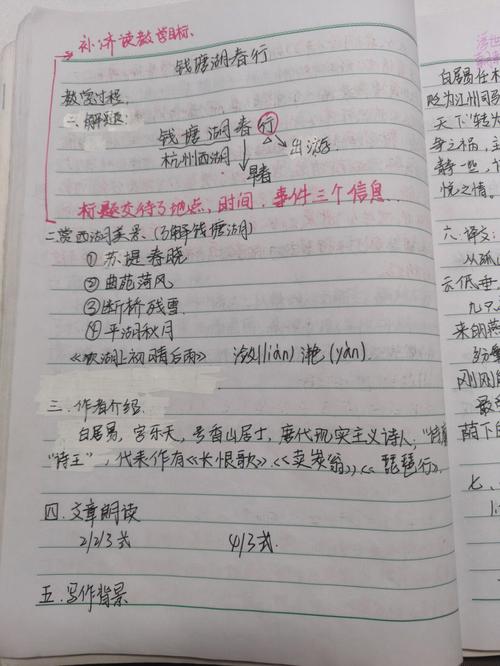 补济读教学目标、
钱塘湖春行
教学过程:
一、解题:
钱塘湖春行
杭州西湖 出游.
早春
标题交待了地点、时间、事件三个信息.
二赏西湖美景、(了解钱塘湖)
① 苏堤春晓
② 曲苑荷风
③ 断桥残雪
④ 平湖秋月
《饮湖上初晴后雨》 潋(liàn) 滟(yàn).
三、作者介绍.
白居易,字乐天,号香山居士,唐代现实主义诗人,"诗魔"
"诗王",代表作有《长恨歌》《卖炭翁》《琵琶行》.
四、文章朗读
2/2/3式 4/3式.
五、写作背景
白居易任杭
贬为江州司马
天下"转为
身之祸,主
静一些,
悦之情。
六、译文:
从孤山
云低垂,
九只
来的燕
纷繁
刚刚
最
荫下的
七、